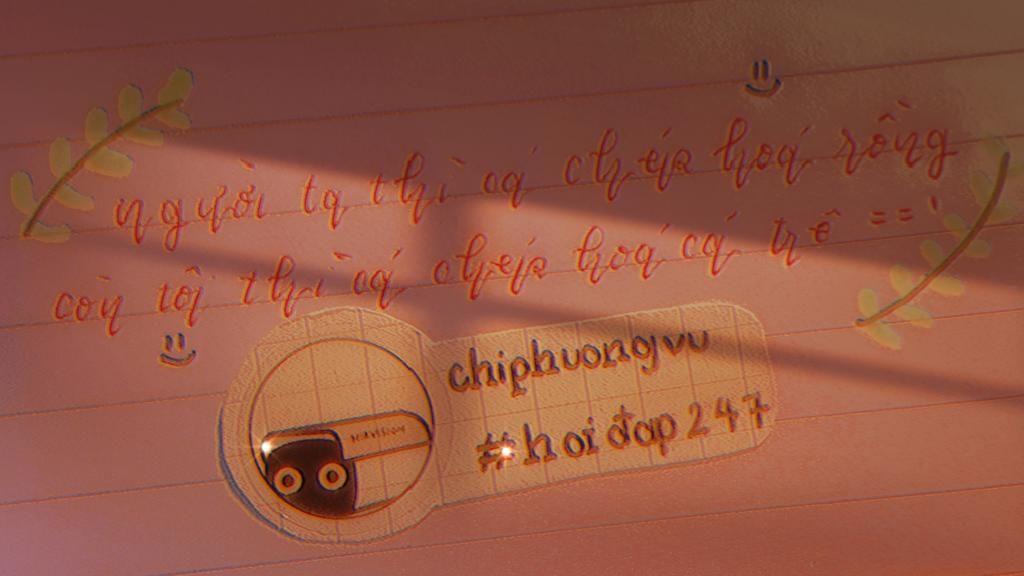 người ta thì cá chép hoá rồng
còn tôi thì cá chép hoá cá trê =='
chiphuongvu
#hoi đap 247